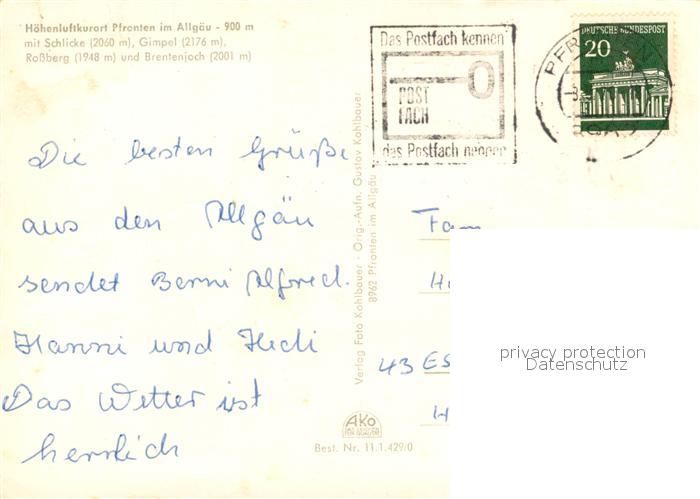 Höhenluftkurort Pfronten im Allgäu - 900 m
mit Schlicke (2060 m), Gimpel (2176 m),
Roßberg (1948 m) und Brentenjoch (2001 m)
Das Postfach kennen
POST
FACH
das Postfach nennen
DEUTSCHE BUNDESPOST
20
PFR
Die besten Grüße
aus den Allgäu
sendet Berni Alfred.
Hanni und Hedi
Das Wetter ist
herrlich
Verlag Foto Kohlbauer - Orig.-Aufn. Gustav Kohlbauer
8962 Pfronten im Allgäu
Fam
H
43 ES
H
privacy protection
Datenschutz
AKO
Best. Nr. 11.1.429/0